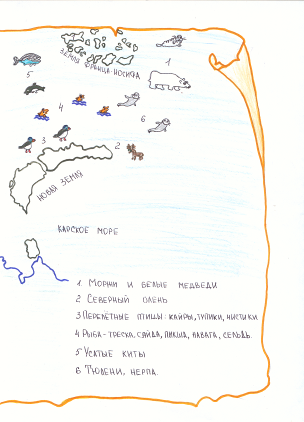 ЗЕМЛЯ ФРАНЦА-ИОСИФА
1
5
4
6
3
2
НОВАЯ ЗЕМЛЯ
КАРСКОЕ МОРЕ
1 МОРЖИ И БЕЛЫЕ МЕДВЕДИ
2 СЕВЕРНЫЙ ОЛЕНЬ
3 ПЕРЕЛЁТНЫЕ ПТИЦЫ: КАЙРЫ, ТУПИКИ, ЧИСТИКИ
4 РЫБА - ТРЕСКА, САЙДА, ПИКША, НАВАГА, СЕЛЬДЬ.
5 УСАТЫЕ КИТЫ
6 ТЮЛЕНИ, НЕРПА.